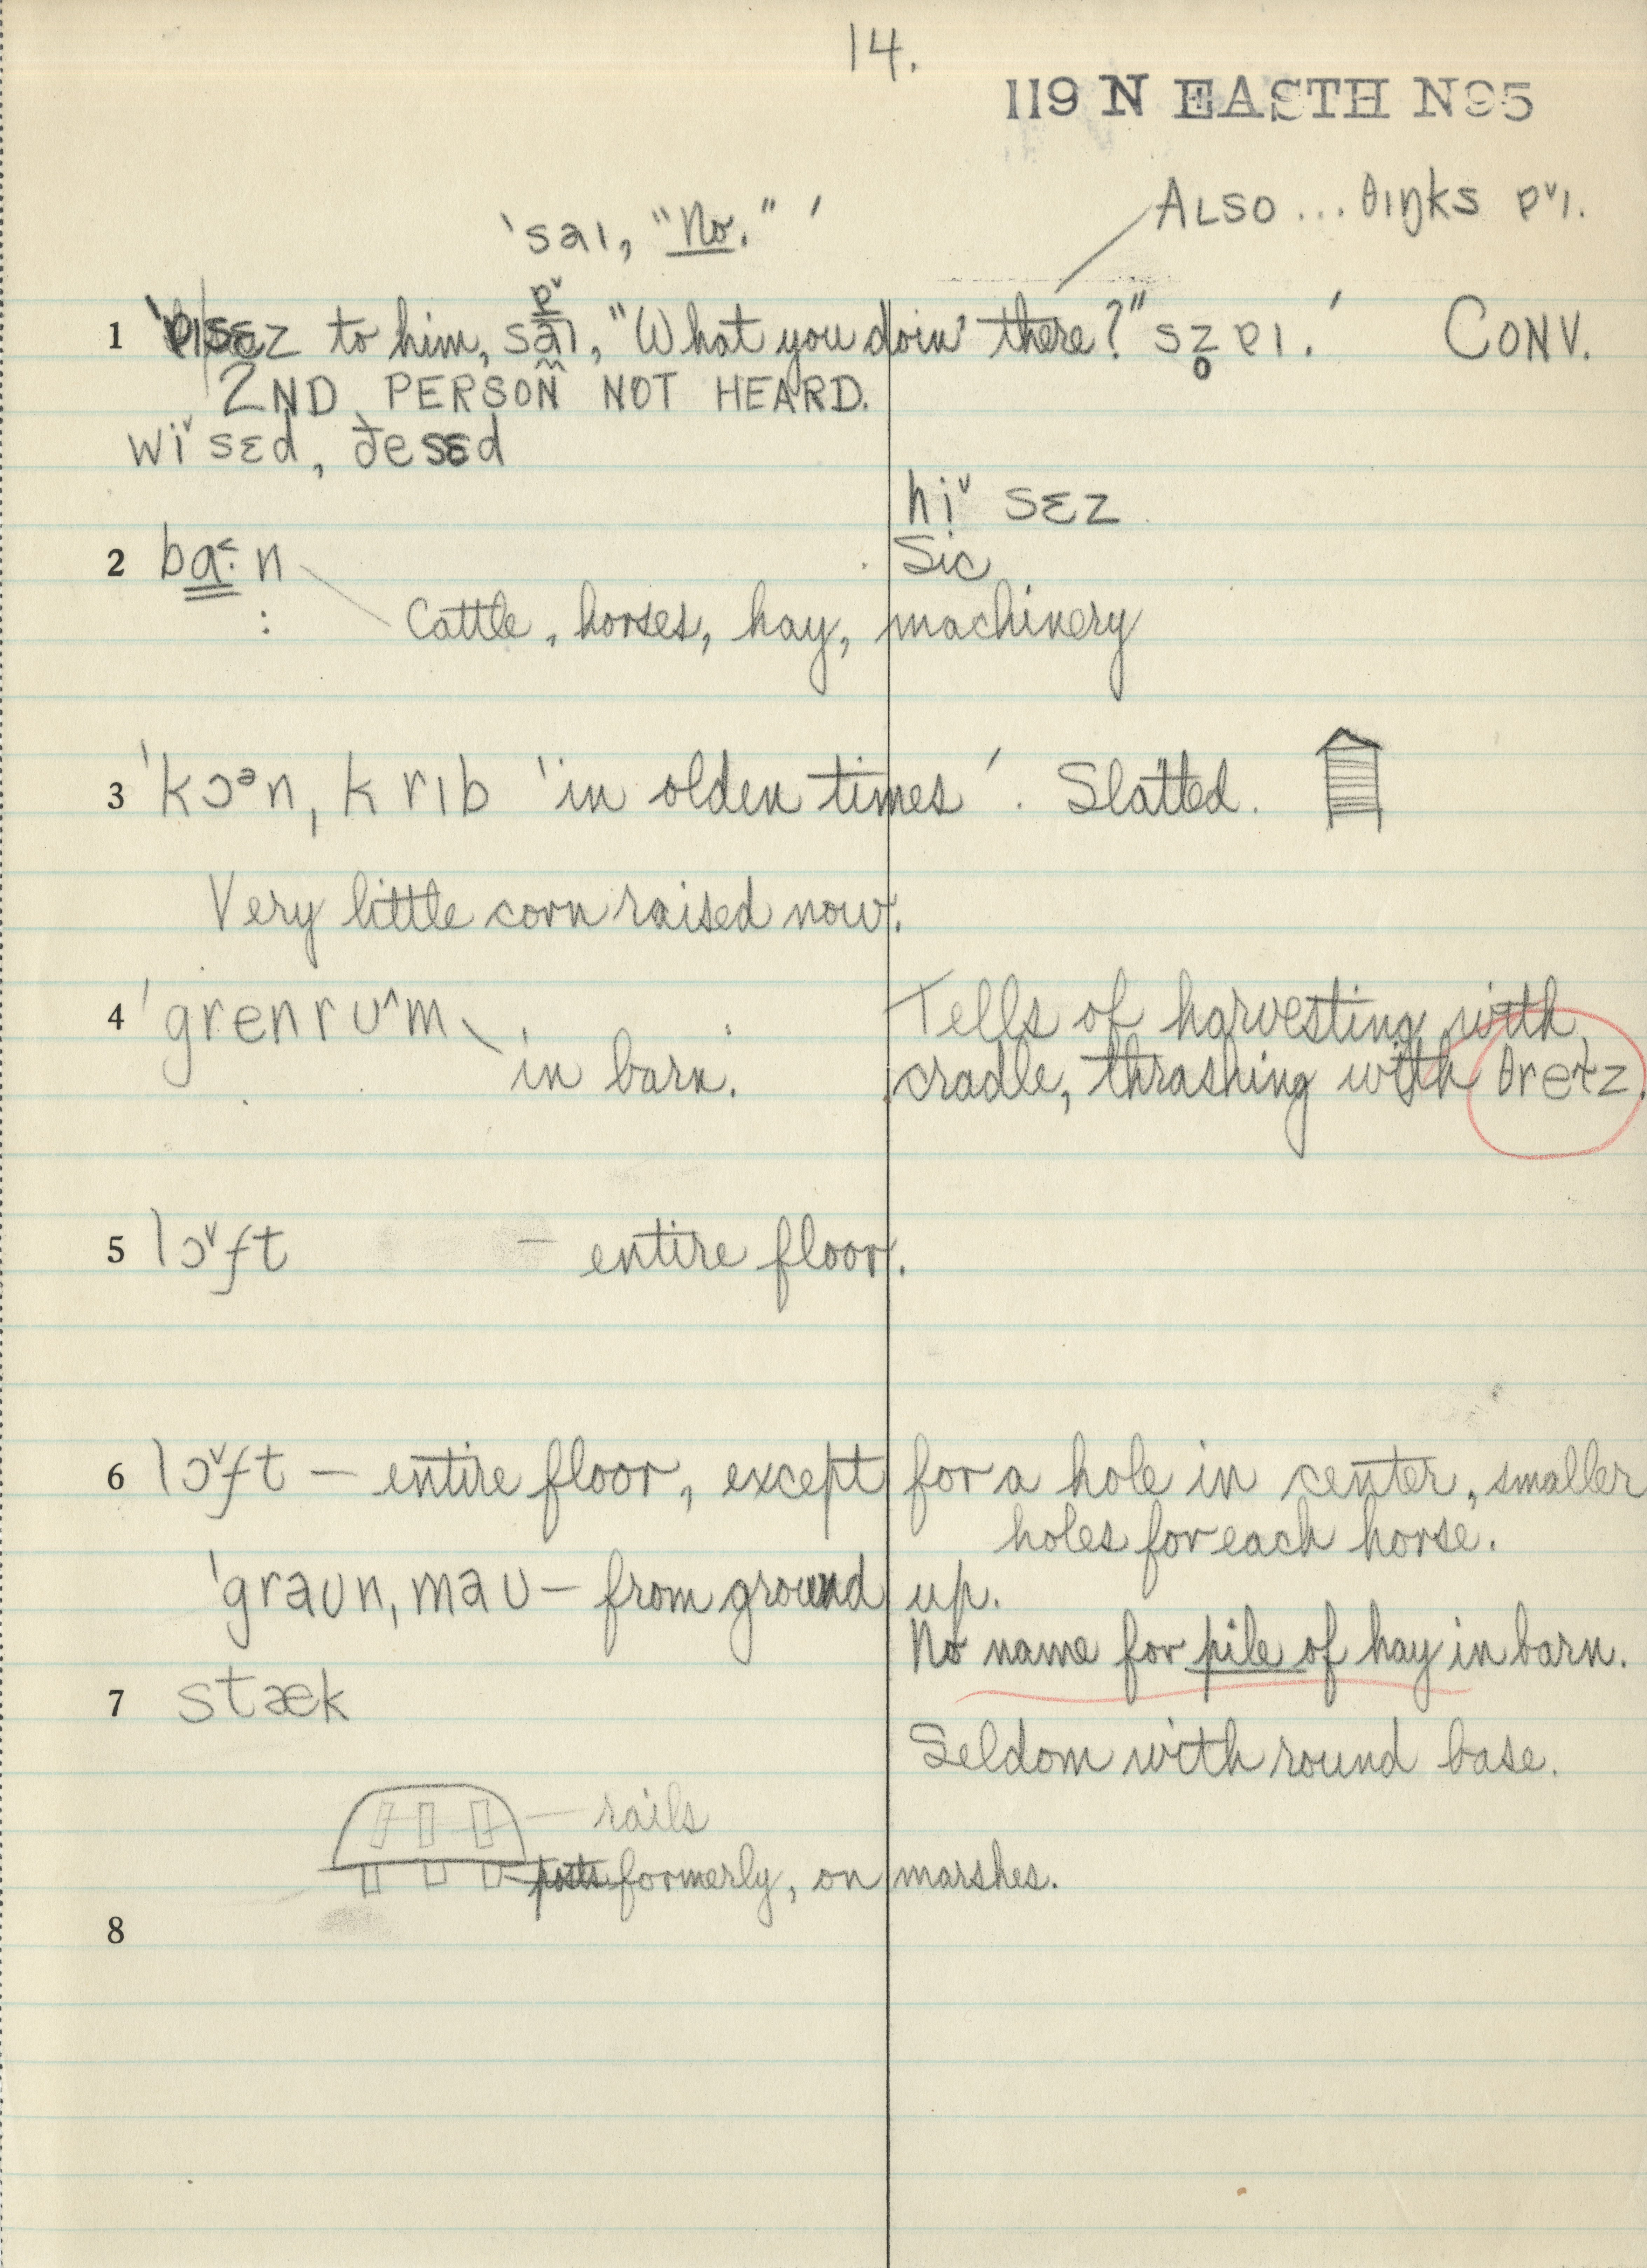 14.
119 N EASTH N95
ALSO ... θɪŋks ɐˇɪ.
'saɪ, "No."'
1 'ɐɪsɛz to him, saɪ, "What you doin' there?" sz̥ ɐɪ.' CONV.
ɐˇ
2ND PERSON NOT HEARD.
wiˇ sɛd, ðesɛd
hiˇ sɛz
2 ba˂·n Sic
: Cattle, horses, hay, machinery
3 'kɔᵊn, krɪb 'in olden times'. Slatted.
Very little corn raised now.
4 'grenrʊ^m Tells of harvesting with
in barn. cradle, thrashing with
5 lɔˇft – entire floor.
6 lɔˇft – entire floor, except for a hole in center, smaller
holes for each horse.
'graʊn, maʊ – from ground up.
No name for pile of hay in barn.
7 stæk
Seldom with round base.
rails
posts formerly, on marshes.
8